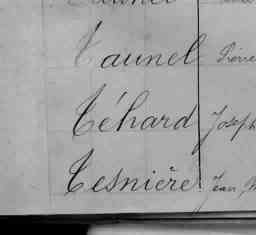 Taunel Pierre
Téhard Joseph
Tesnière Jean